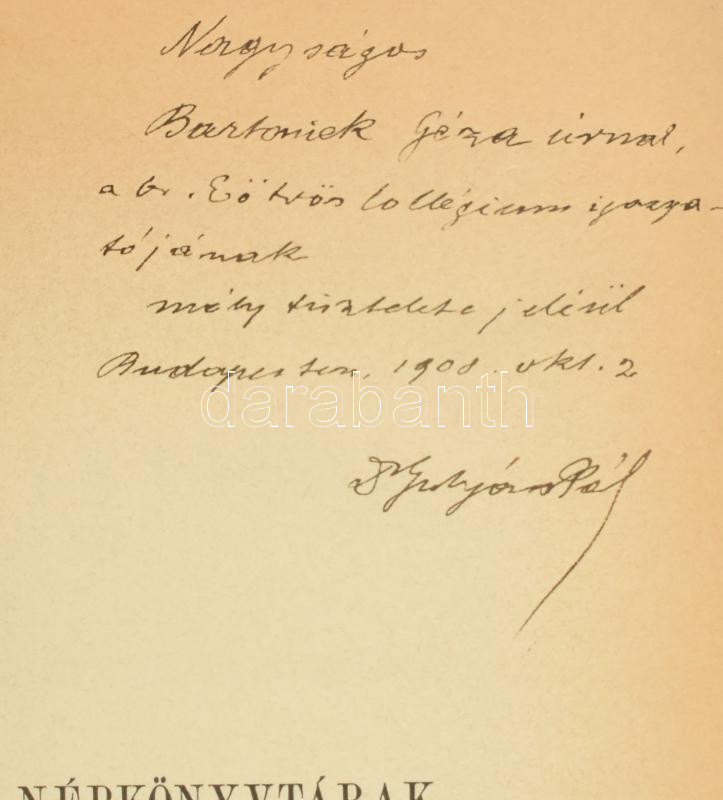 Nagyságos
Bartoniek Géza úrnak,
a br. Eötvös Collégium igazga-
tójának
mély tisztelete jeléül
Budapesten, 1908. okt. 2
darabanth
Dr Gulyás Pál
NÉPKÖNYVTÁRAK